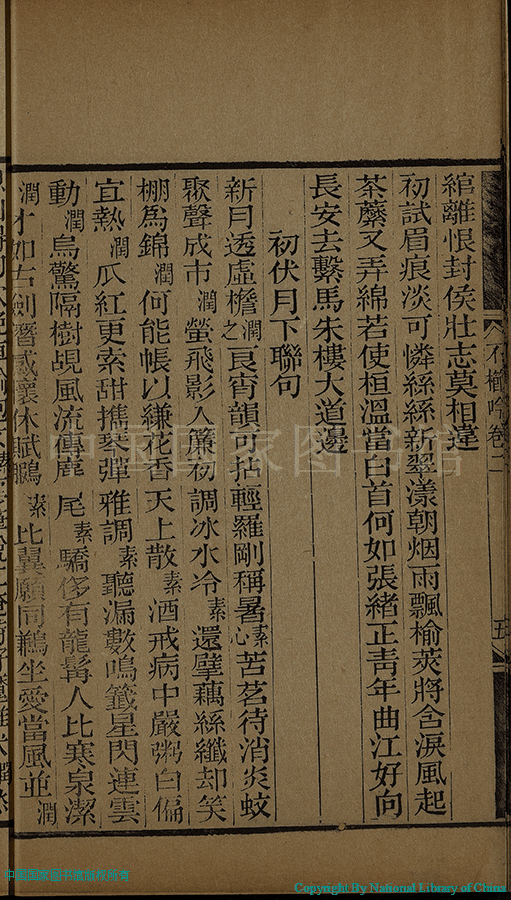 綰離恨封侯壯志莫相違
初試眉痕淡可憐絲絲新翠漾朝烟雨飄榆莢將含淚風起
荼蘼又弄綿若使桓溫當白首何如張緒正靑年曲江好向
長安去繫馬朱樓大道邊
初伏月下聯句
新月透虛檐潤之良宵韻可拈輕羅剛稱暑素心苦茗待消炎蚊
聚聲成市潤螢飛影入簾初調冰水冷素還擘藕絲纖却笑
棚爲錦潤何能帳以縑花香天上散素酒戒病中嚴粥白偏
宜熱潤瓜紅更索甜攜琴彈雅調素聽漏數鳴籤星閃連雲
動潤烏驚隔樹覘風流傳麈尾素驕侈有龍髯人比寒泉潔
潤才如古劍潛感懷休賦鵩素比翼願同鶼坐愛當風並潤
不櫛吟卷二
五
中国国家图书馆
中国国家图书馆版权所有
Copyright By National Library of China